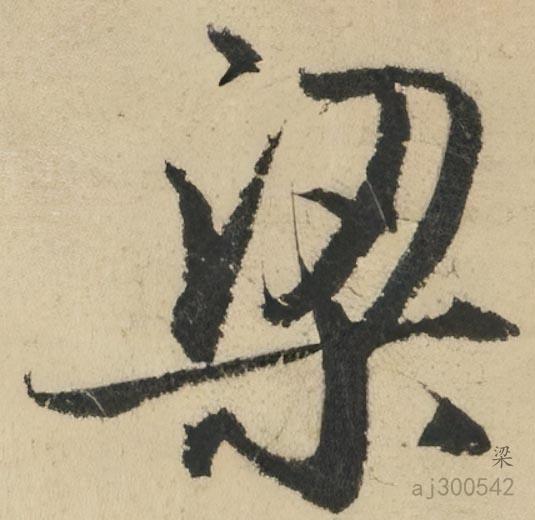 梁
梁
aj300542